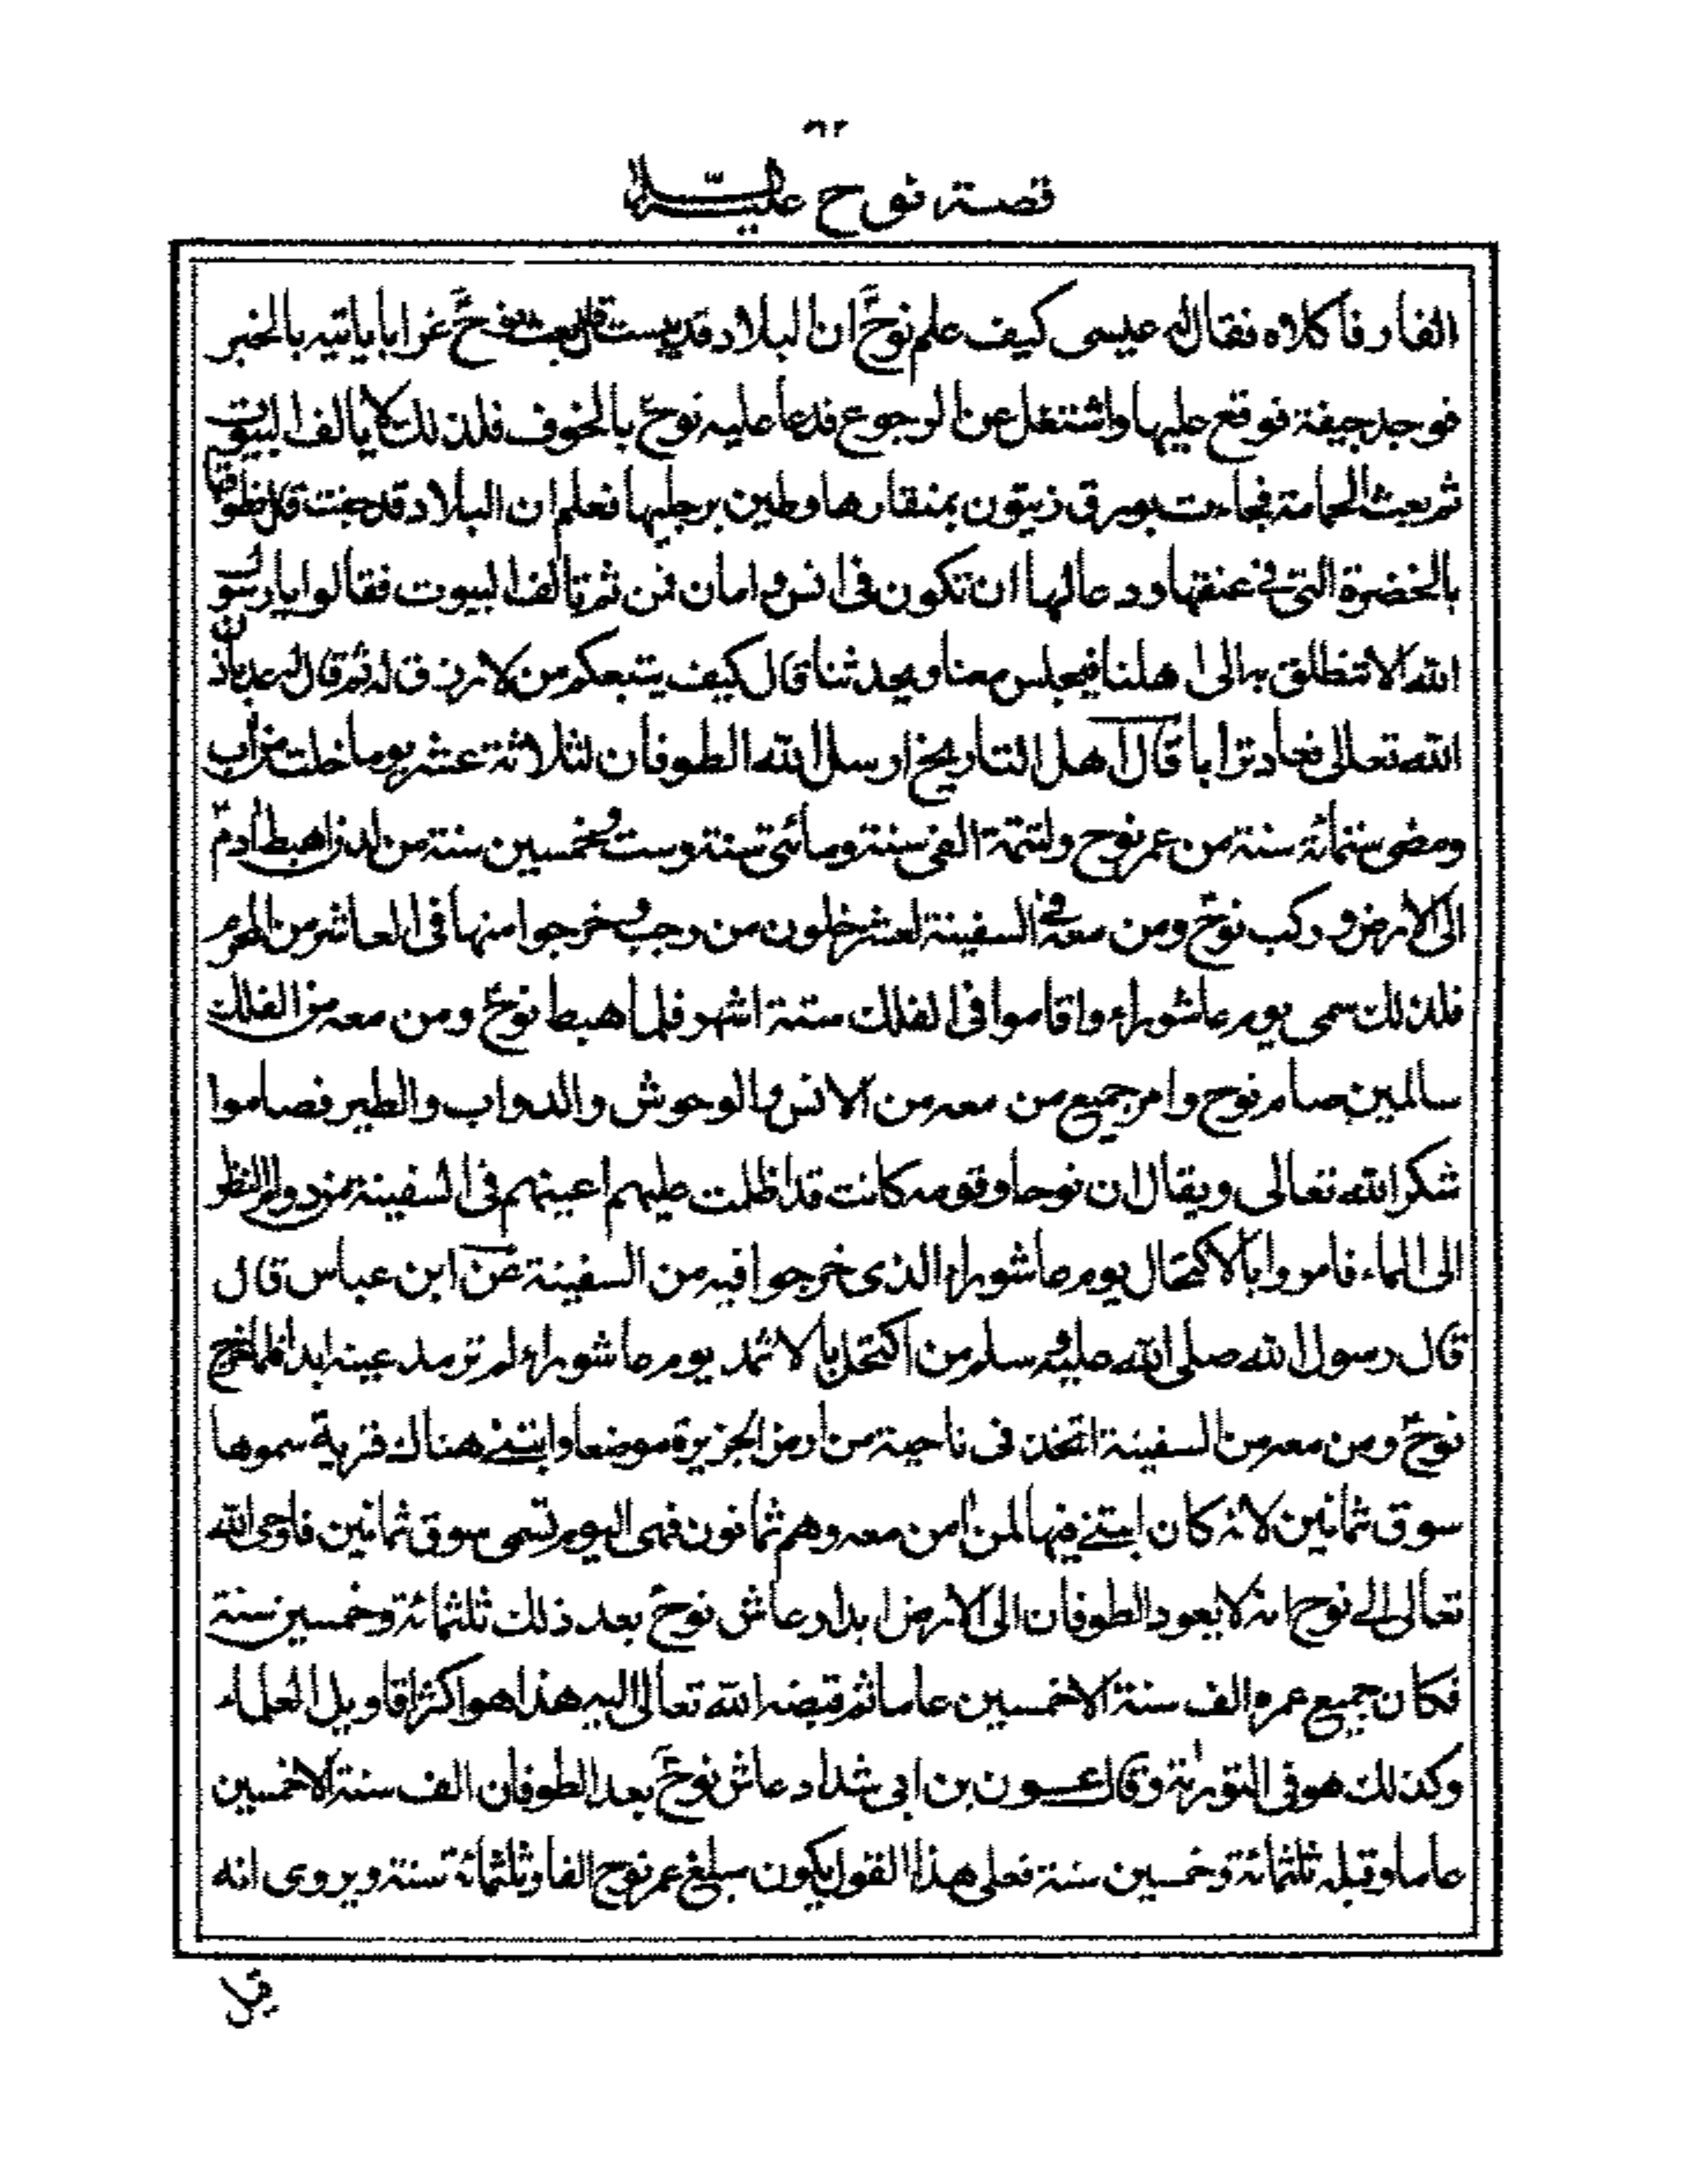 ٦٢
قصة نوح عليه السلام
الفار فأكلاه فقال له عيسى كيف علم نوحؑ ان البلاد قد يبست قال بعث نوحؑ غرابا ياتيه بالخبر
فوجد جيفة فوقع عليها واشتغل عن الرجوع فدعا عليه نوحؑ بالخوف فلذلك لا يالف البيوت
ثم بعث الحمامة فجاءت بورق زيتون بمنقارها وطين برجليها فعلم ان البلاد قد جفت قال فطوقها
بالخضرة التى فى عنقها ودعا لها ان تكون فى انس وامان فمن ثم تالف البيوت فقالوا يا رسول
الله الا تنطلق به الى اهلنا فيجلس معنا ويحدثنا قال كيف يتبعكم من لا رزق له ثم قال له عد باذن
الله تعالى فعاد ترابا قال اهل التاريخ ارسل الله الطوفان لثلاثة عشر يوما خلت من اب
ومضى ستمائة سنة من عمر نوح ولتتمة الفى سنة ومائتى سنة وست وخمسين سنة من لدن اهبط ادمؑ
الى الارض وركب نوحؑ ومن معه فى السفينة لعشر خلون من رجب وخرجوا منها فى العاشر من المحرم
فلذلك سمى يوم عاشوراء واقاموا فى الفلك ستة اشهر فلما هبط نوحؑ ومن معه من الفلك
سالمين صام نوح وامر جميع من معه من الانس والوحوش والدواب والطير فصاموا
شكرا لله تعالى ويقال ان نوحا وقومه كانت قد اظلمت عليهم اعينهم فى السفينة من دوام النظر
الى الماء فامروا بالاكتحال يوم عاشوراء الذى خرجوا فيه من السفينة عن ابن عباس قال
قال رسول الله صلى الله عليه وسلم من اكتحل بالاثمد يوم عاشوراء لم ترمد عينه ابدا فلما خرج
نوحؑ ومن معه من السفينة اتخذ فى ناحية من ارض الجزيرة موضعا وابتنى هناك قرية سموها
سوق ثمانين لانه كان ابتنى فيها لمن امن معه وهم ثمانون فهى اليوم تسمى سوق ثمانين فاوحى الله
تعالى الى نوح انه لا يعود الطوفان الى الارض ابدا وعاش نوحؑ بعد ذلك ثلثمائة وخمسين سنة
فكان جميع عمره الف سنة الا خمسين عاما ثم قبضه الله تعالى اليه هذا هو اكثر اقاويل العلماء
وكذلك هو فى التورٰىة وقال عون بن ابى شداد عاش نوحؑ بعد الطوفان الف سنة الا خمسين
عاما وقبله ثلثمائة وخمسين سنة فعلى هذا القول يكون مبلغ عمر نوح الفا وثلثمائة سنة ويروى انه
قيل